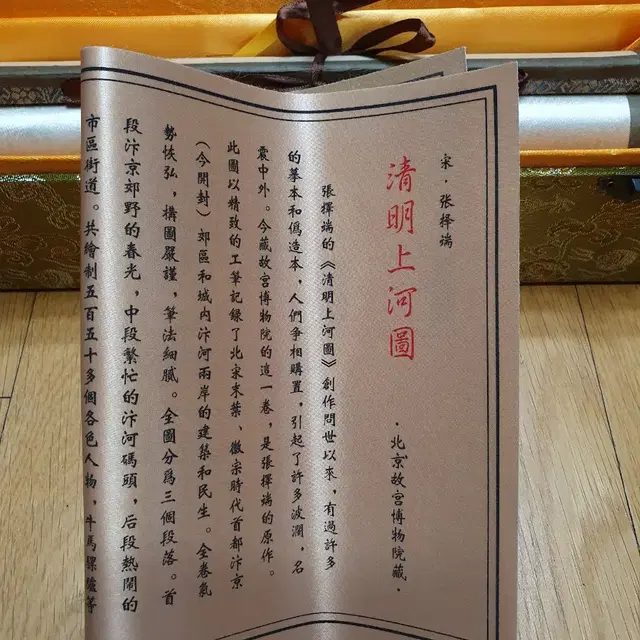 宋·張择端
清明上河圖
·北京故宫博物院藏·
張擇端的《清明上河圖》創作問世以來，有過許多
的摹本和僞造本，人們争相購置，引起了許多波瀾，名
震中外。今藏故宫博物院的這一卷，是張擇端的原作。
此圖以精致的工筆記録了北宋末葉、徽宗時代首都汴京
（今開封）郊區和城内汴河兩岸的建築和民生。全卷氣
勢恢弘，構圖嚴謹，筆法細膩。全圖分爲三個段落。首
段汴京郊野的春光，中段繁忙的汴河碼頭，后段熱鬧的
市區街道。共繪制五百五十多個各色人物，牛馬騾驢等